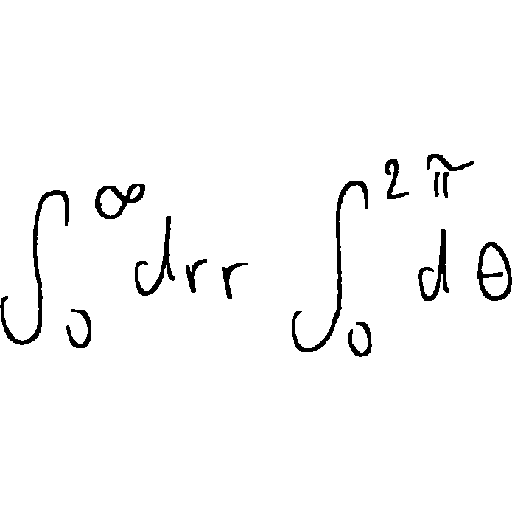 \int_0^\infty drr \int_0^{2\pi} d\theta